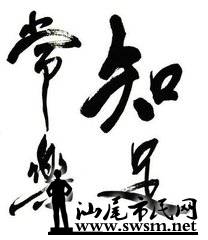 知足
常樂
汕尾市民网
www.swsm.net